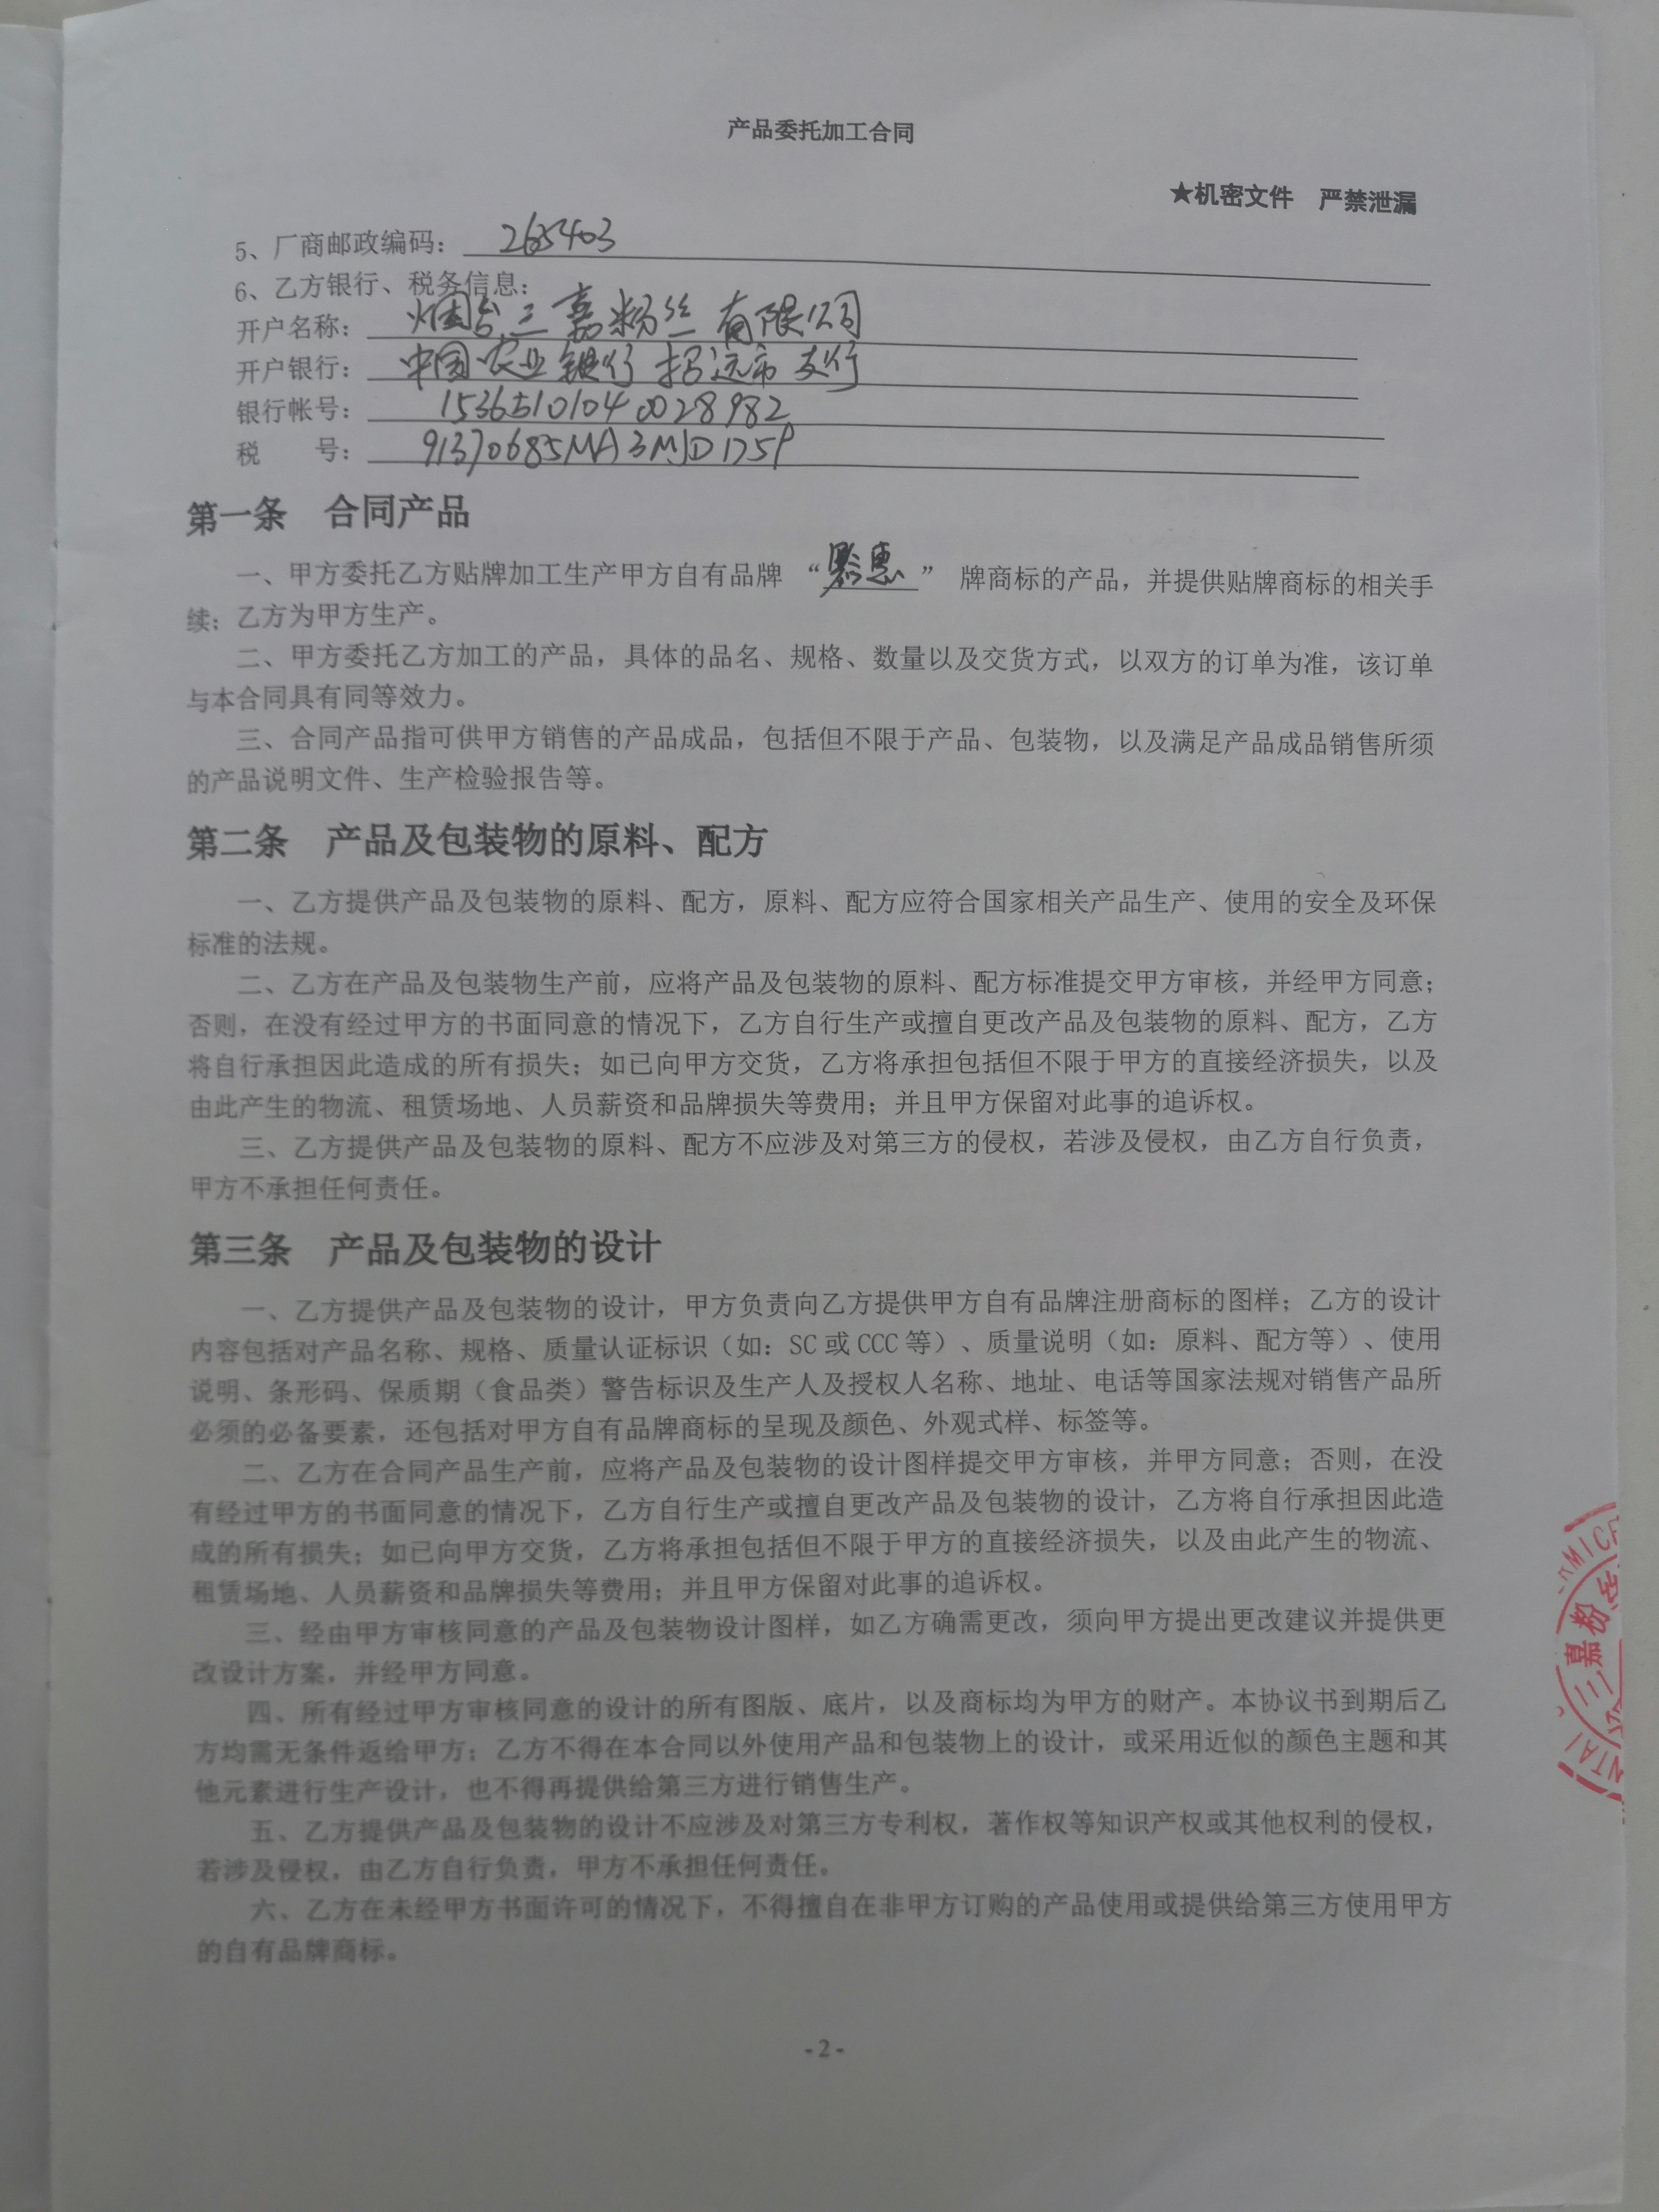 产品委托加工合同
★机密文件 严禁泄漏
5、厂商邮政编码: 265403
6、乙方银行、税务信息:
开户名称: 烟台三嘉粉丝有限公司
开户银行: 中国农业银行招远市支行
银行帐号: 15365101040028982
税 号: 91370685MA3MJD175P
第一条 合同产品
一、甲方委托乙方贴牌加工生产甲方自有品牌“黔惠”牌商标的产品，并提供贴牌商标的相关手
续；乙方为甲方生产。
二、甲方委托乙方加工的产品，具体的品名、规格、数量以及交货方式，以双方的订单为准，该订单
与本合同具有同等效力。
三、合同产品指可供甲方销售的产品成品，包括但不限于产品、包装物，以及满足产品成品销售所须
的产品说明文件、生产检验报告等。
第二条 产品及包装物的原料、配方
一、乙方提供产品及包装物的原料、配方，原料、配方应符合国家相关产品生产、使用的安全及环保
标准的法规。
二、乙方在产品及包装物生产前，应将产品及包装物的原料、配方标准提交甲方审核，并经甲方同意；
否则，在没有经过甲方的书面同意的情况下，乙方自行生产或擅自更改产品及包装物的原料、配方，乙方
将自行承担因此造成的所有损失；如已向甲方交货，乙方将承担包括但不限于甲方的直接经济损失，以及
由此产生的物流、租赁场地、人员薪资和品牌损失等费用；并且甲方保留对此事的追诉权。
三、乙方提供产品及包装物的原料、配方不应涉及对第三方的侵权，若涉及侵权，由乙方自行负责，
甲方不承担任何责任。
第三条 产品及包装物的设计
一、乙方提供产品及包装物的设计，甲方负责向乙方提供甲方自有品牌注册商标的图样；乙方的设计
内容包括对产品名称、规格、质量认证标识（如：SC 或 CCC 等）、质量说明（如：原料、配方等）、使用
说明、条形码、保质期（食品类）警告标识及生产人及授权人名称、地址、电话等国家法规对销售产品所
必须的必备要素，还包括对甲方自有品牌商标的呈现及颜色、外观式样、标签等。
二、乙方在合同产品生产前，应将产品及包装物的设计图样提交甲方审核，并甲方同意；否则，在没
有经过甲方的书面同意的情况下，乙方自行生产或擅自更改产品及包装物的设计，乙方将自行承担因此造
成的所有损失；如已向甲方交货，乙方将承担包括但不限于甲方的直接经济损失，以及由此产生的物流、
租赁场地、人员薪资和品牌损失等费用；并且甲方保留对此事的追诉权。
三、经由甲方审核同意的产品及包装物设计图样，如乙方确需更改，须向甲方提出更改建议并提供更
改设计方案，并经甲方同意。
四、所有经过甲方审核同意的设计的所有图版、底片，以及商标均为甲方的财产。本协议书到期后乙
方均需无条件返给甲方；乙方不得在本合同以外使用产品和包装物上的设计，或采用近似的颜色主题和其
他元素进行生产设计，也不得再提供给第三方进行销售生产。
五、乙方提供产品及包装物的设计不应涉及对第三方专利权，著作权等知识产权或其他权利的侵权，
若涉及侵权，由乙方自行负责，甲方不承担任何责任。
六、乙方在未经甲方书面许可的情况下，不得擅自在非甲方订购的产品使用或提供给第三方使用甲方
的自有品牌商标。
三嘉粉丝
- 2 -